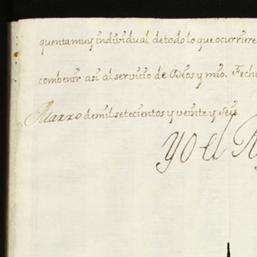 quenta muy individual, de todo lo que ocurriere
combenir asi al servicio de Dios y mio. Fech
Marzo de mil setecientos y veinte y Seis
Yo el R